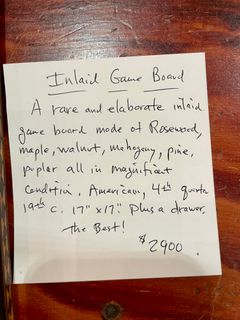 Inlaid Game Board
A rare and elaborate inlaid
game board made of Rosewood,
maple, walnut, mahogany, pine,
poplar all in magnificent
condition, American, 4th quarter
19th c. 17" x 17". Plus a drawer,
the Best!
$2900.